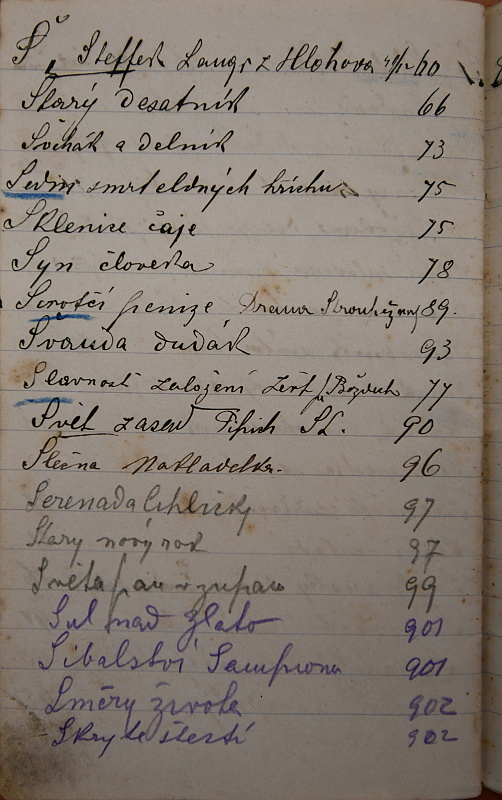 Š, Steffek Langr z Hlohova 60
Starý desatník 66
Švihák a dělník 73
Sedm smrteldných hříchu 75
Sklenice čaje 75
Syn člověka 78
Sirotčí peníze Drama 89.
Švanda dudák 93
Slavnost založení žert 77
Svět zásad 90
Slečna Natlačelka. 96
Serenada 97
Starý nový rok 97
Světa pan v župan 99
Sul nad zlato 901
Šibalství Sampiona 901
Směry života 902
- Skryte štestí 902